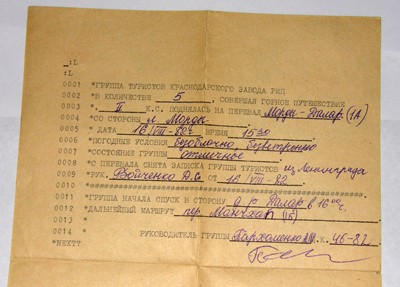 _:L
:L
0001 *ГРУППА ТУРИСТОВ КРАСНОДАРСКОГО ЗАВОДА РИП
0002 *В КОЛИЧЕСТВЕ 5, СОВЕРШАЯ ГОРНОЕ ПУТЕШЕСТВИЕ
0003 *. II К.С. ПОДНЯЛАСЬ НА ПЕРЕВАЛ Морды-Дилар (1А)
0004 *СО СТОРОНЫ л. Морды
0005 * ДАТА 16/VIII-82г ВРЕМЯ 15 30
0006 *ПОГОДНЫЕ УСЛОВИЯ безоблачно, безветренно
0007 *СОСТОЯНИЕ ГРУППЫ отличное
0008 *С ПЕРЕВАЛА СНЯТА ЗАПИСКА ГРУППЫ ТУРИСТОВ из Ленинграда
0009 *РУК. Войченко А.С. ОТ 16 VIII-82
0010
0011 *ГРУППА НАЧАЛА СПУСК В СТОРОНУ р. Дилар в 16 00
0012 *ДАЛЬНЕЙШИЙ МАРШРУТ пер.
0013 *
0014 * РУКОВОДИТЕЛЬ ГРУППЫ Пархоменко М.К. 46-82
*NEXT?